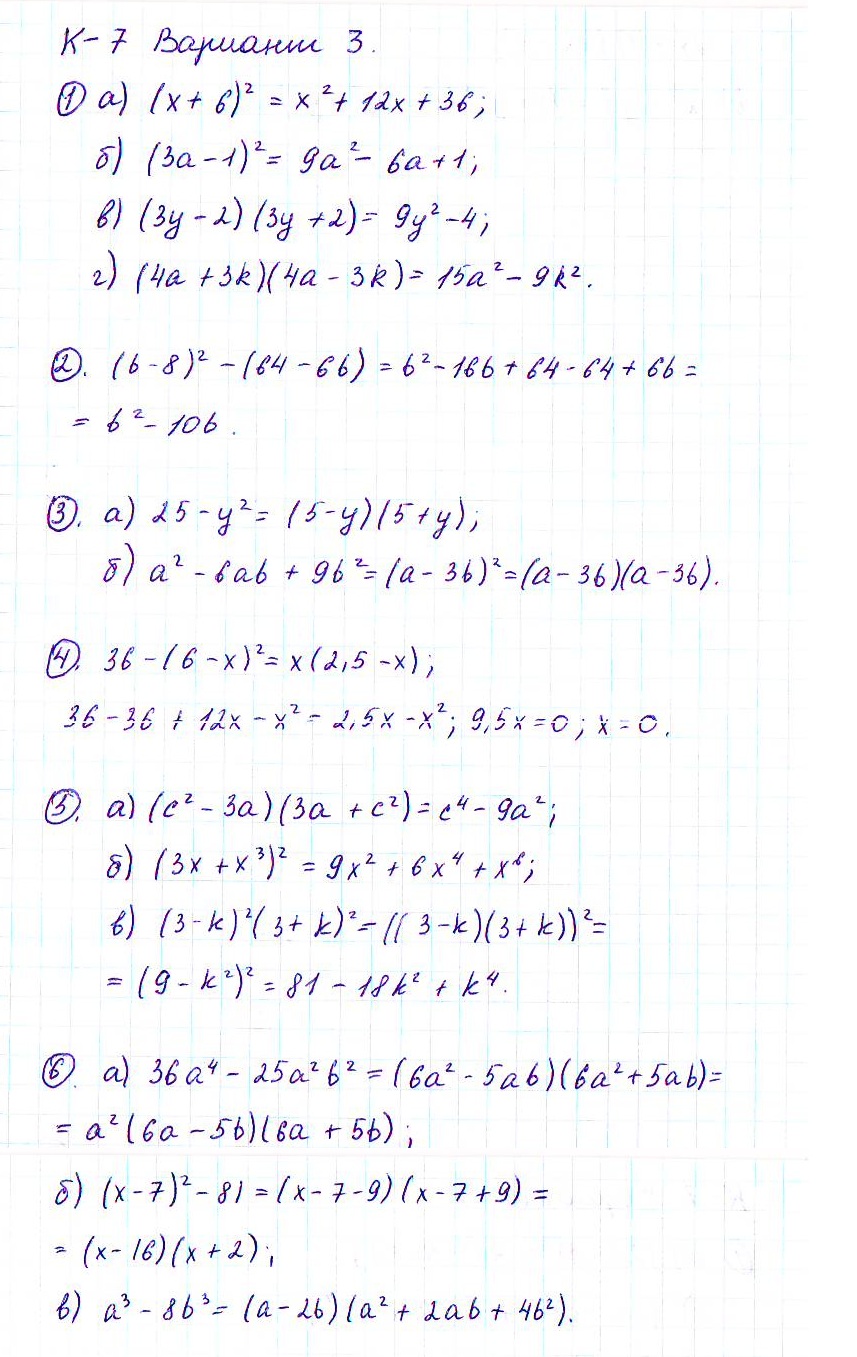 К-7 Вариант 3.
① а) (x + 6)² = x² + 12x + 36;
б) (3a - 1)² = 9a² - 6a + 1;
в) (3y - 2)(3y + 2) = 9y² - 4;
г) (4a + 3k)(4a - 3k) = 15a² - 9k².
②. (b - 8)² - (64 - 6b) = b² - 16b + 64 - 64 + 6b =
= b² - 10b.
③. а) 25 - y² = (5 - y)(5 + y);
б) a² - 6ab + 9b² = (a - 3b)² = (a - 3b)(a - 3b).
④. 36 - (6 - x)² = x(2,5 - x);
36 - 36 + 12x - x² = 2,5x - x²; 9,5x = 0; x = 0.
⑤. а) (c² - 3a)(3a + c²) = c⁴ - 9a²;
б) (3x + x³)² = 9x² + 6x⁴ + x⁶;
в) (3 - k)²(3 + k)² = ((3 - k)(3 + k))² =
= (9 - k²)² = 81 - 18k² + k⁴.
⑥. а) 36a⁴ - 25a²b² = (6a² - 5ab)(6a² + 5ab) =
= a²(6a - 5b)(6a + 5b);
б) (x - 7)² - 81 = (x - 7 - 9)(x - 7 + 9) =
= (x - 16)(x + 2);
в) a³ - 8b³ = (a - 2b)(a² + 2ab + 4b²).